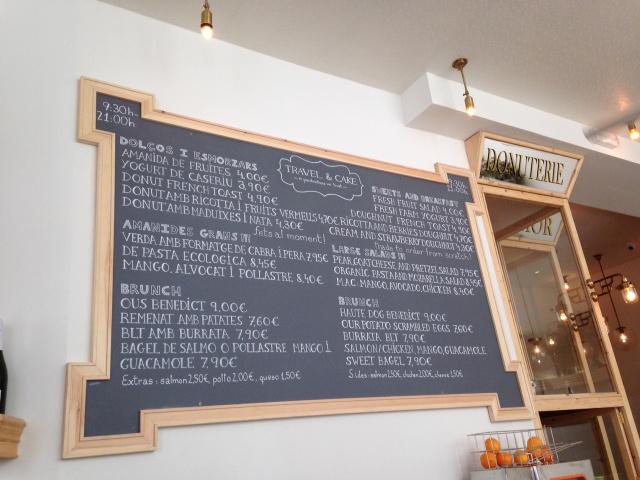 9:30h-
21:00h
TRAVEL & CAKE
DOLÇOS I ESMORZARS
AMANIDA DE FRUITES 4,00€
YOGURT DE CASERIU 3,90€
DONUT FRENCH TOAST 4,90€
DONUT AMB RICOTTA I FRUITS VERMELLS 4,70€
DONUT AMB MADUIXES I NATA 4,30€
fets al moment!
AMANIDES GRANS
VERDA AMB FORMATGE DE CABRA I PERA 7,95€
DE PASTA ECOLÒGICA 8,45€
MANGO, ALVOCAT I POLLASTRE 8,40€
BRUNCH
OUS BENEDICT 9,00€
REMENAT AMB PATATES 7,60€
BLT AMB BURRATA 7,90€
BAGEL DE SALMO O POLLASTRE MANGO I
GUACAMOLE 7,90€
Extras: salmon 2,50€, pollo 2,00€, queso 1,50€
9:30h
SWEETS AND BREAKFAST
FRESH FRUIT SALAD 4,00€
FRESH FARM YOGURT 3,90€
DOUGHNUT FRENCH TOAST 4,90€
RICOTTA AND BERRIES DOUGHNUT 4,70€
CREAM AND STRAWBERRY DOUGHNUT 4,30€
made to order from scratch!
LARGE SALADS
PEAR, GOAT CHEESE AND PRETZEL SALAD 7,95€
ORGANIC PASTA AND MOZARELLA SALAD 8,45€
M.A.C. MANGO, AVOCADO, CHICKEN 8,40€
BRUNCH
HAUTE DOG BENEDICT 9,00€
OUR POTATO SCRAMBLED EGGS 7,60€
BURRATA BLT 7,90€
SALMON/CHICKEN, MANGO, GUACAMOLE
SWEET BAGEL 7,90€
Sides: salmon 2,50€, chicken 2,00€, cheese 1,50€
DONUTERIE